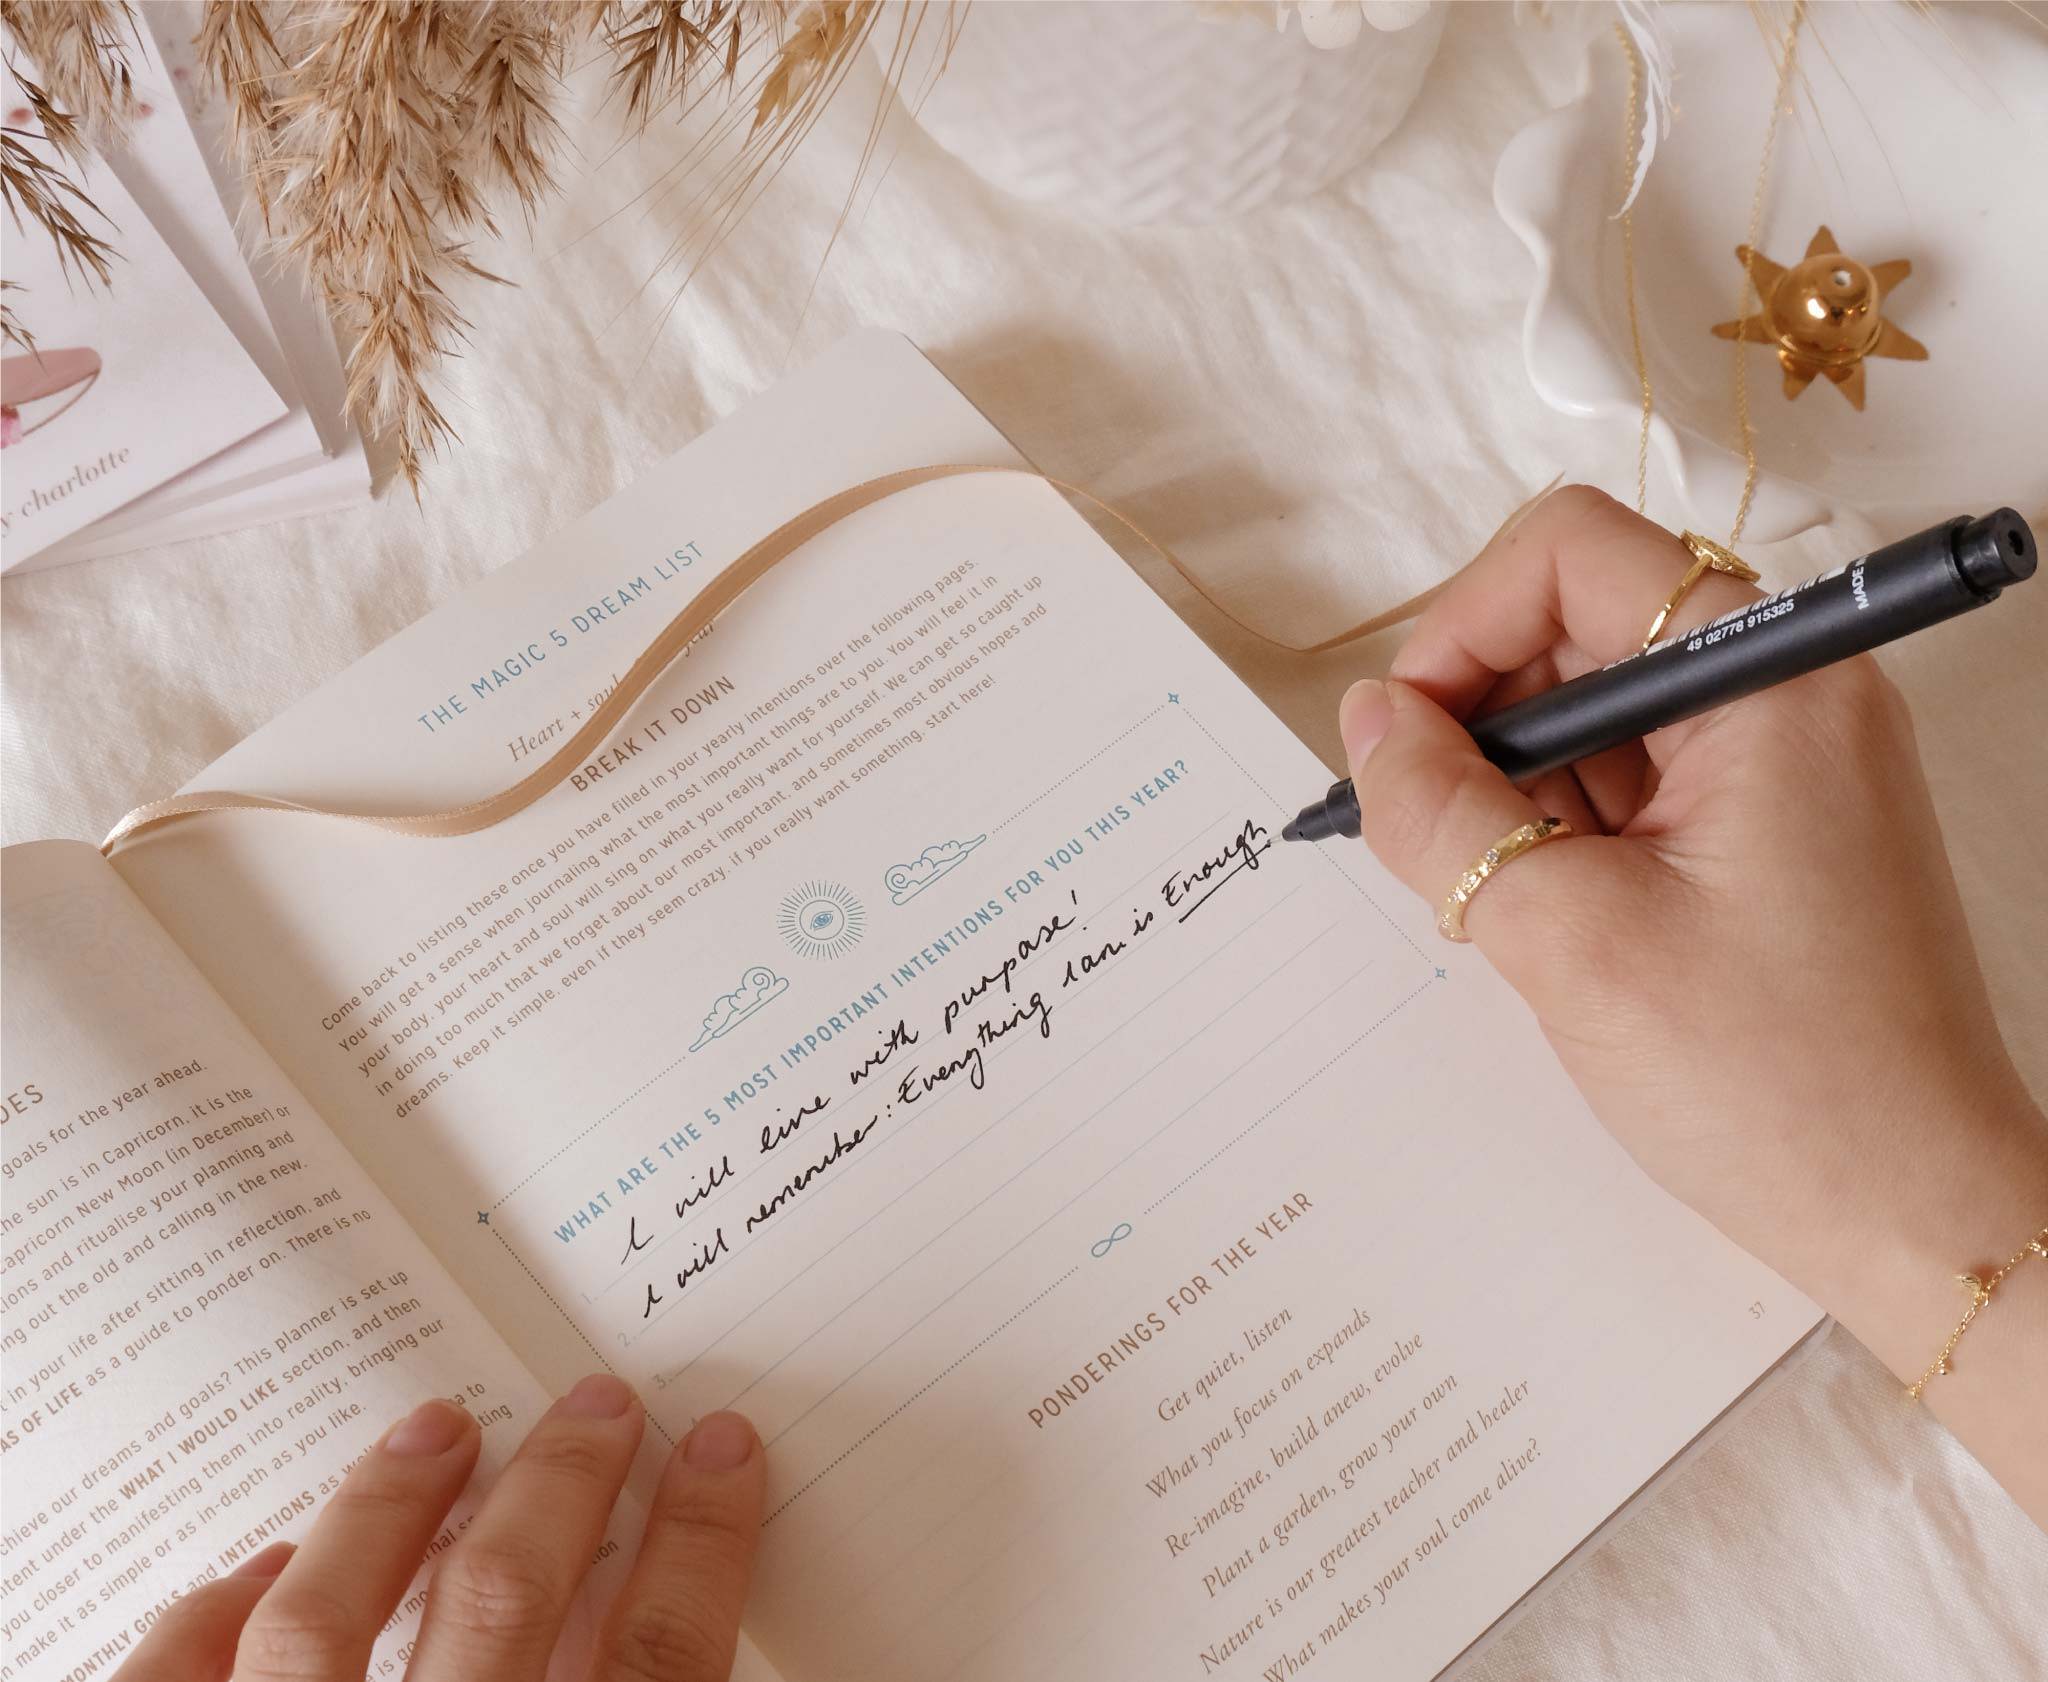 y charlotte
THE MAGIC 5 DREAM LIST
Heart + soul year
BREAK IT DOWN
Come back to listing these once you have filled in your yearly intentions over the following pages.
You will get a sense when journaling what the most important things are to you. You will feel it in
your body, your heart and soul will sing on what you really want for yourself. We can get so caught up
in doing too much that we forget about our most important, and sometimes most obvious hopes and
dreams. Keep it simple, even if they seem crazy, if you really want something, start here!
WHAT ARE THE 5 MOST IMPORTANT INTENTIONS FOR YOU THIS YEAR?
1. I will live with purpose!
2. I will remember: Everything I am is Enough.
3.
4
PONDERINGS FOR THE YEAR
Get quiet, listen
What you focus on expands
Re-imagine, build anew, evolve
Plant a garden, grow your own
Nature is our greatest teacher and healer
What makes your soul come alive?
37
DES
goals for the year ahead.
he sun is in Capricorn, it is the
Capricorn New Moon (in December) or
tions and ritualise your planning and
ng out the old and calling in the new.
t in your life after sitting in reflection, and
AS OF LIFE as a guide to ponder on. There is no
chieve our dreams and goals? This planner is set up
ntent under the WHAT I WOULD LIKE section, and then
you closer to manifesting them into reality, bringing our
n make it as simple or as in-depth as you like.
MONTHLY GOALS and INTENTIONS as well
a to
ting
BLACK
49 02778 915325
MADE